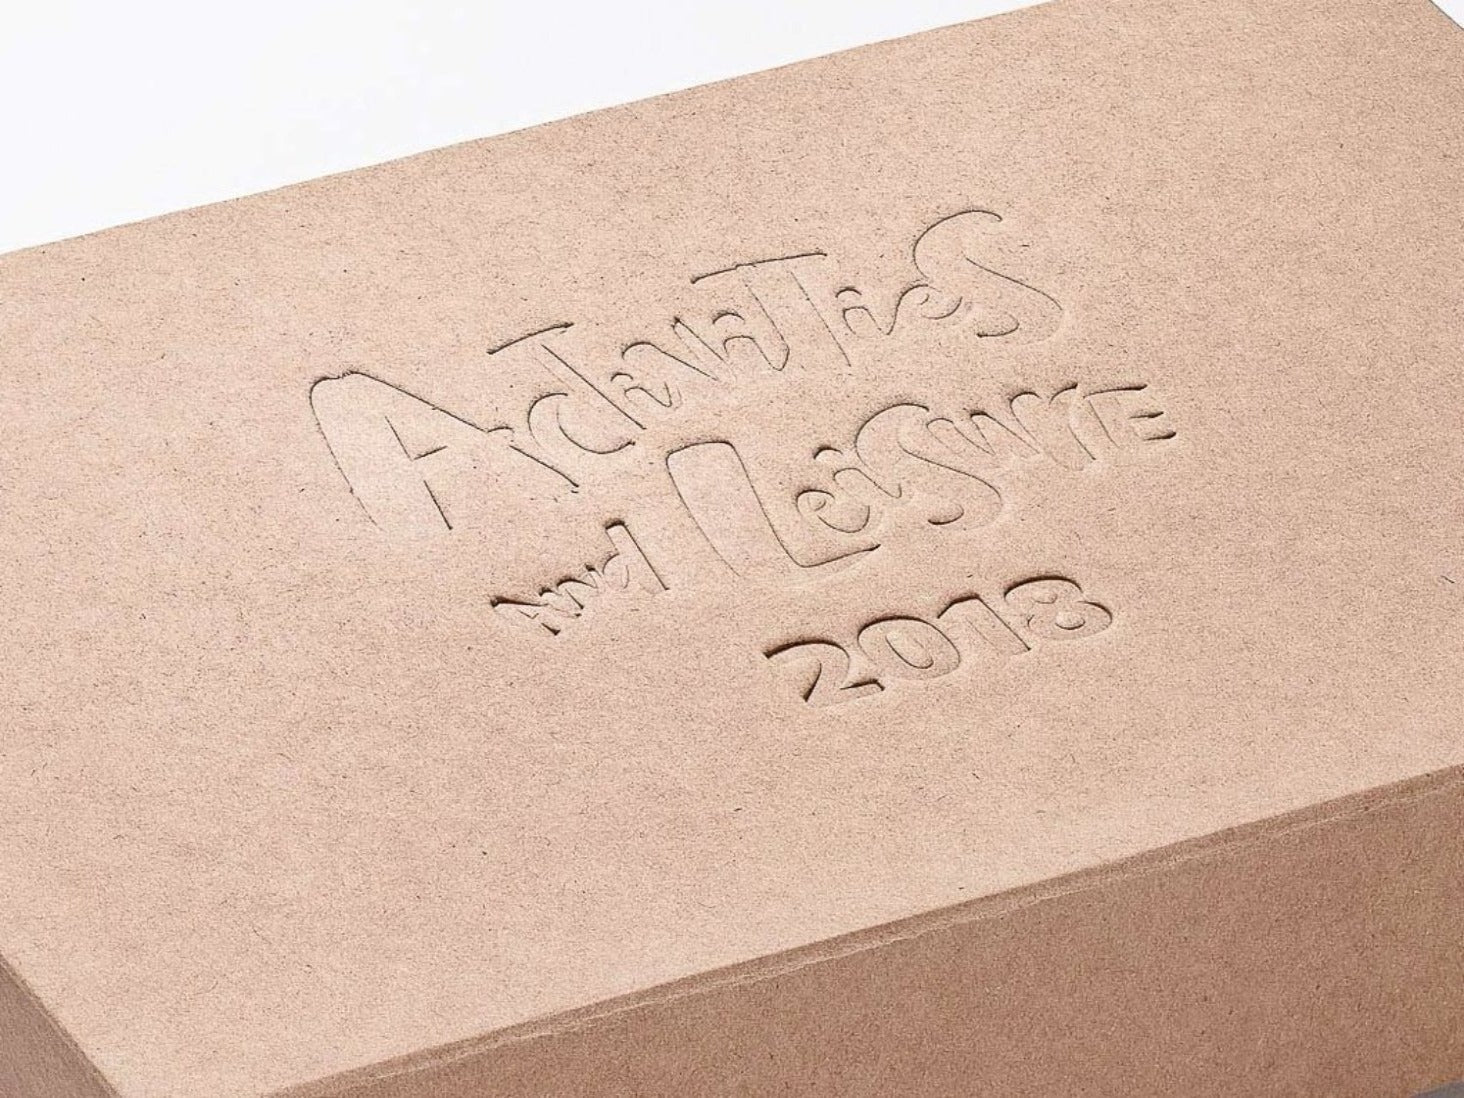 Activities
and Leisure
2018